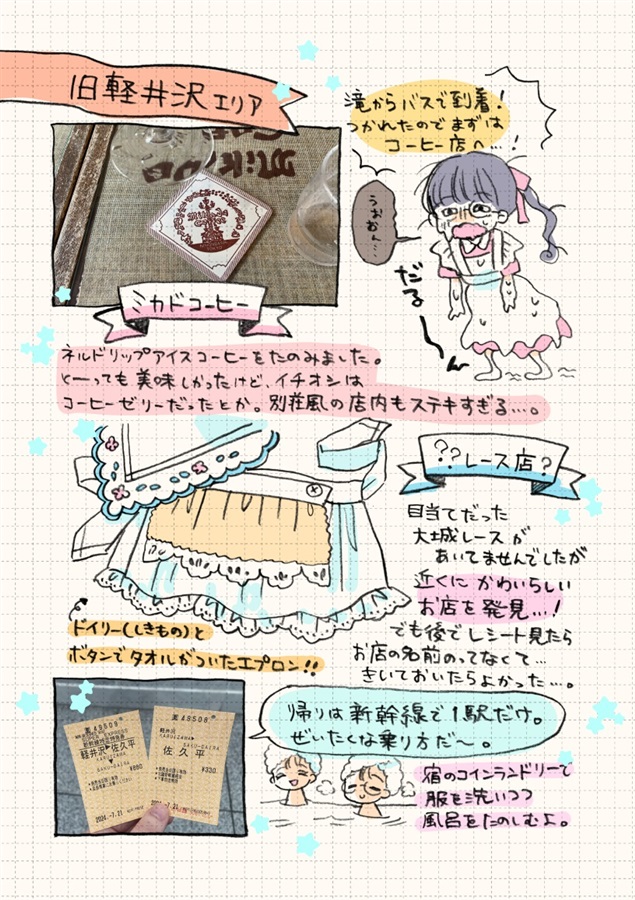 旧軽井沢エリア
滝からバスで到着!
つかれたのでまずは
コーヒー店へ…!
うおおん…
だる〜〜ん
ミカドコーヒー
ネルドリップアイスコーヒーをたのみました。
とーっても美味しかったけど、イチオシは
コーヒーゼリーだったとか。別荘風の店内もステキすぎる…。
??レース店?
目当てだった
大城レースが
あいてませんでしたが
近くにかわいらしい
お店を発見…!
でも後でレシート見たら
お店の名前のってなくて…
きいておいたらよかった…。
ドイリー(しきもの)と
ボタンでタオルがついたエプロン!!
帰りは新幹線で1駅だけ。
ぜいたくな乗り方だ〜。
宿のコインランドリーで
服を洗いつつ
風呂をたのしむよ。
軽井沢▶佐久平
¥880
2024.-7.21
軽井沢
佐久平
¥330